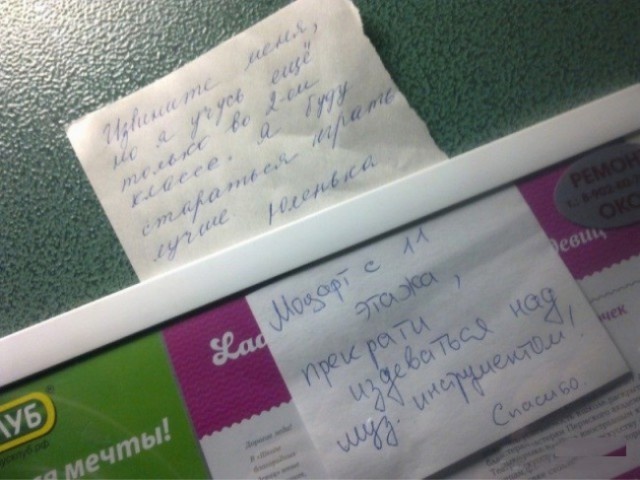 Извините меня,
но я учусь ещё
только во 2-ом
классе. Я буду
стараться играть
лучше Юленька
РЕМОН
ОКО
Моцарт с 11
этажа,
прекрати
издеваться над
муз. инструментом!
Спасибо.
Lad
девиц
чек
УБ
мечты!